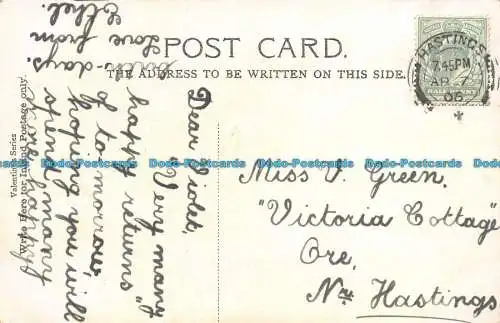 POST CARD.
THE ADDRESS TO BE WRITTEN ON THIS SIDE.
HASTINGS
7.45PM
AP 7
06
HALFPENNY
Valentines Series
Write Here for Inland Postage only.
Dear Violet,
"Very many
happy returns"
of to morrow,
hoping you will
spend many
more happy
such days.
Love from
Ethel.
Miss V. Green,
"Victoria Cottage"
Ore,
Nr Hastings
Dodo-Postcards Dodo-Postcards Dodo-Postcards Dodo-Postcards Dodo-Postcards